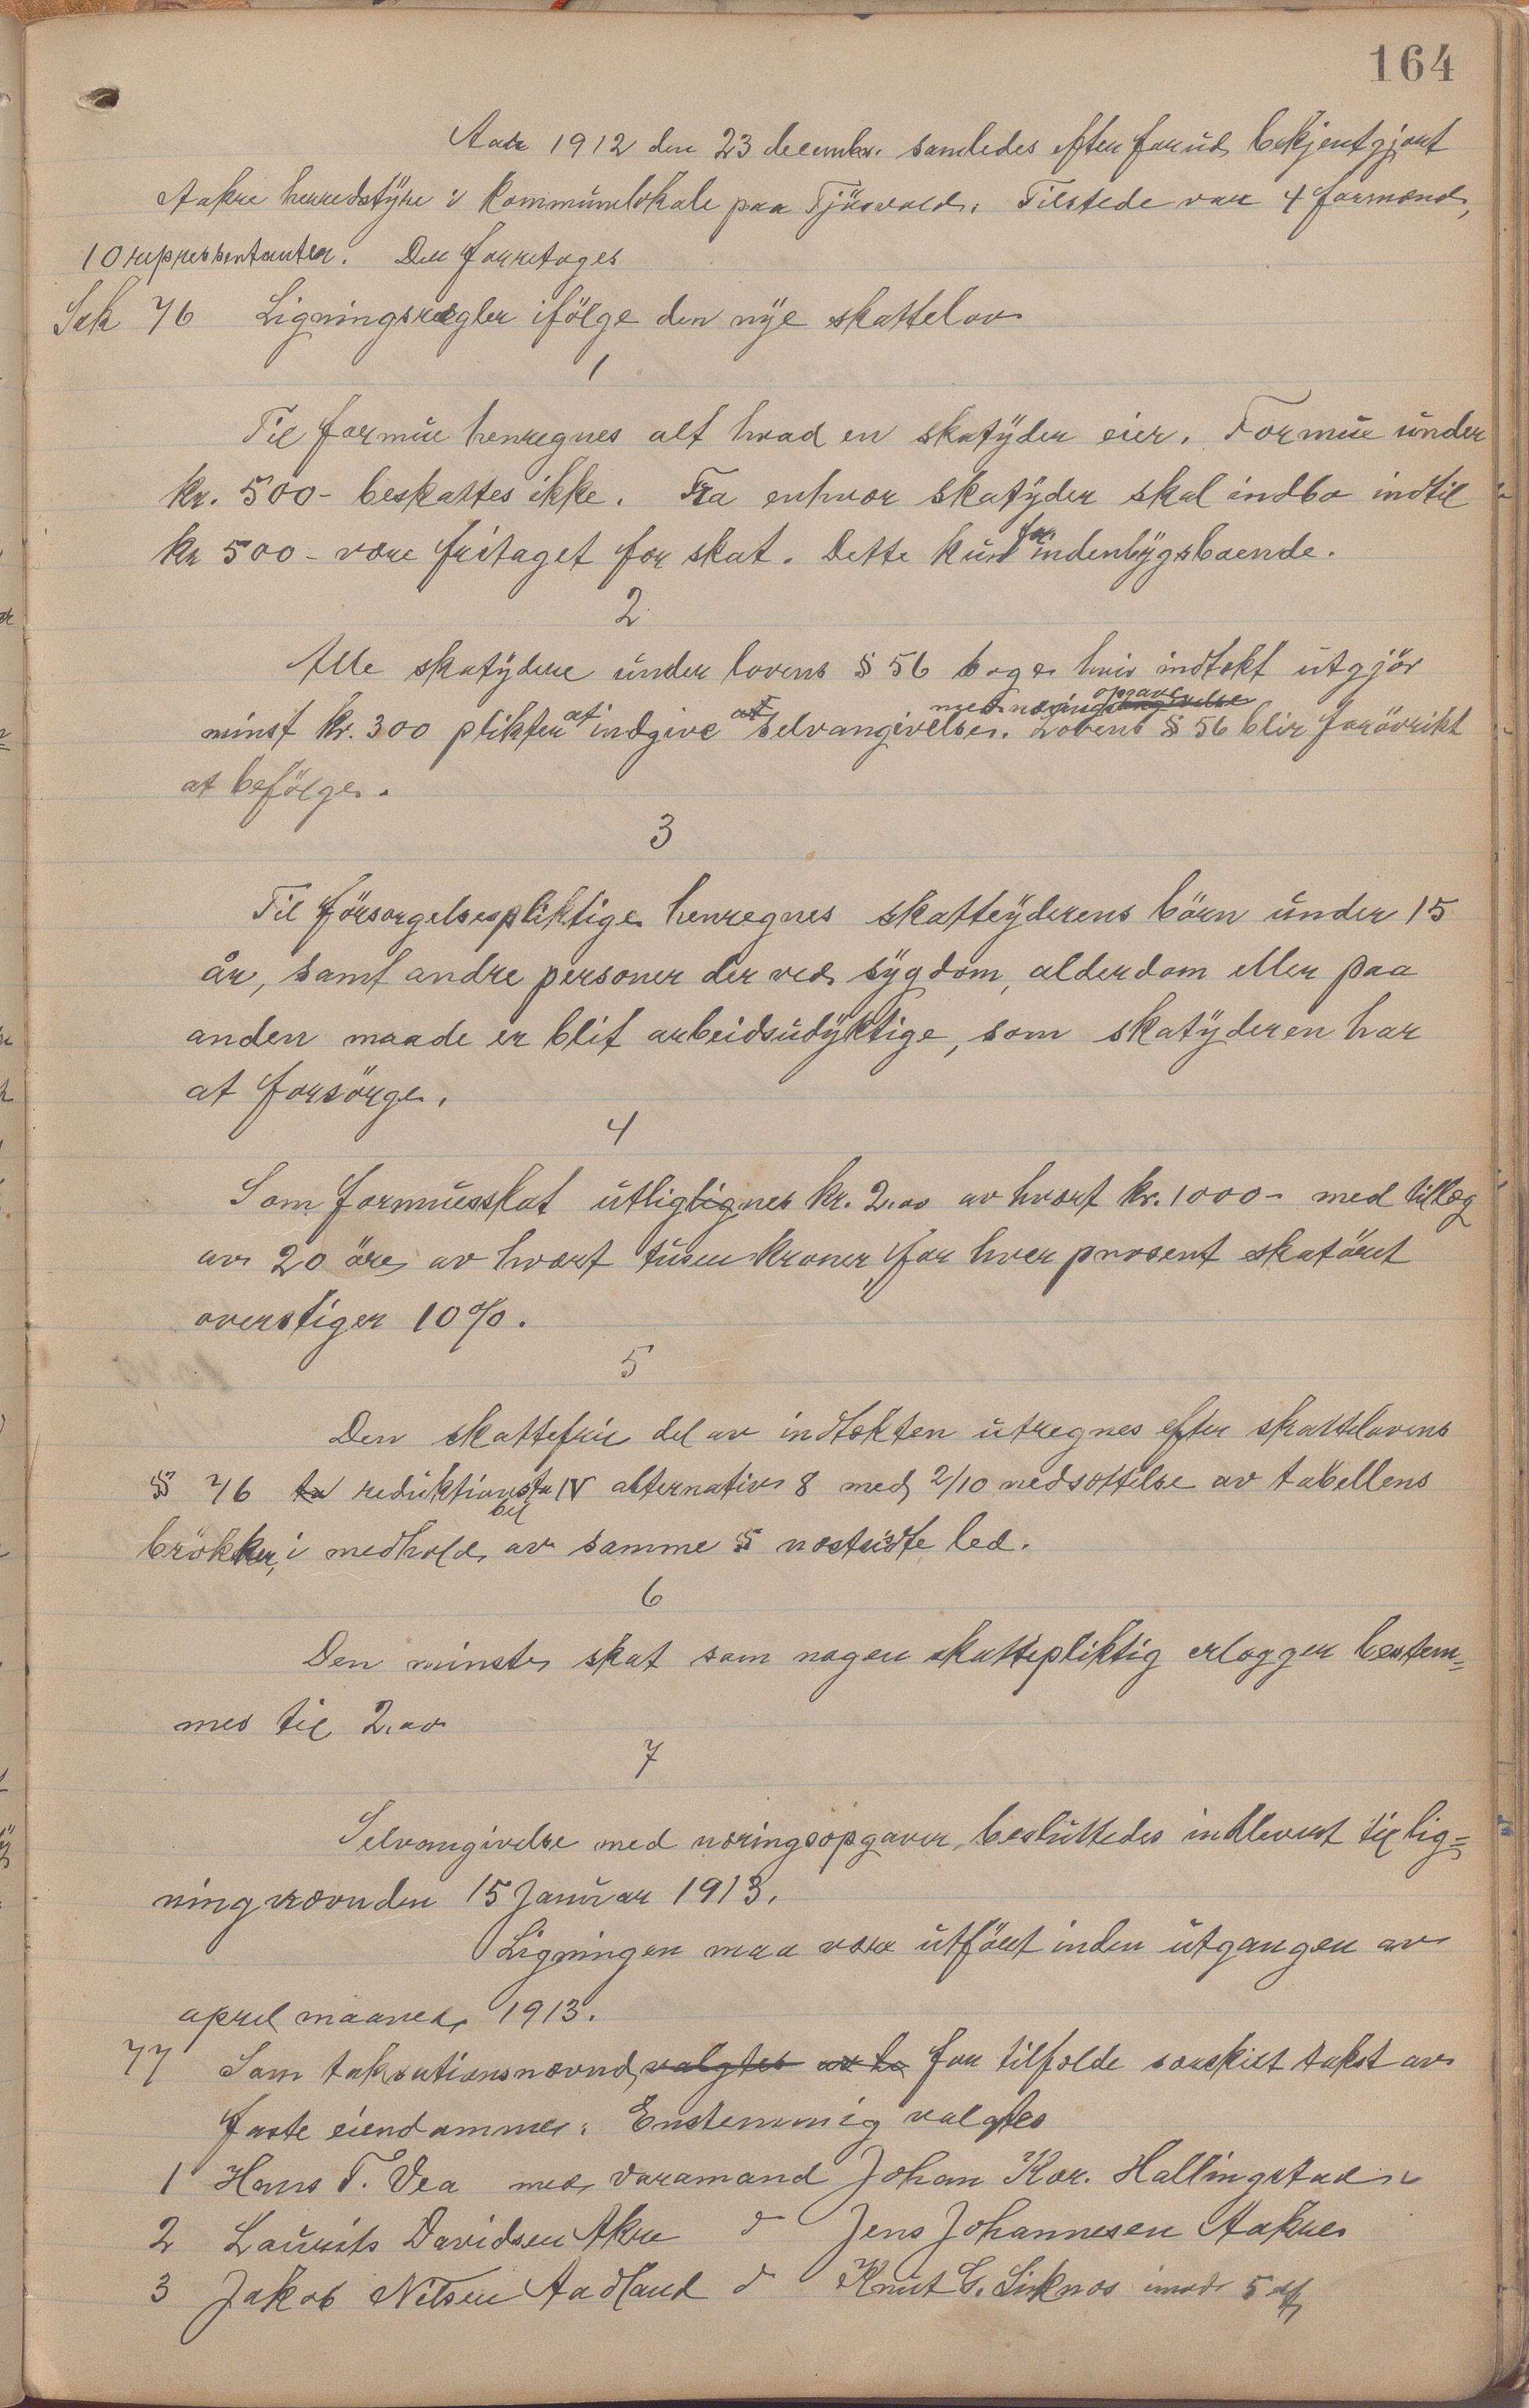 164
Aar 1912 den 23 decembr. samledes efter forud bekjentgjort
Aakre herredstyre i kommunelokale paa Tjösvold. Tilstede var 4 formænd,
10 representanter. Der forretoges
Sak 76 Ligningsregler ifölge den nye skattelov
1
Til formue henregnes alt hvad en skatyder eier. Formue under
kr. 500- beskattes ikke. Fra enhver skatyder skal indbo indtil
kr 500- være fritaget for skat. Dette kun for indenbygsboende.
2
Alle skatydere under lovens § 56 hvis indtekt utgjör
minst kr. 300 plikter at indgive selvangivelse med næringsopgave. Lovens § 56 blir forövrikt
at befölge.
3
Til försorgelsespliktige henregnes skatteyderens börn under 15
år, samt andre personer der ved sygdom, alderdom eller paa
anden maade er blit arbeidsudyktige, som skatyderen har
at forsörge.
4
Som formuesskat utliglignes kr. 2.00 av hvert kr. 1000- med tillæg
av 20 öre av hvert tusen kroner, for hver prosent skatöret
overstiger 10%.
5
Den skattefrie del av indtekten utregnes efter skattelovens
§ 76 ta reduktionstabel IV alternativ 8 med 2/10 nedsættelse av tabellens
brökker, i medhold av samme § næstsidste led.
6
Den minste skat som nogen skattepliktig erlægger bestem=
mes til 2.00
7
Selvangivelse med næringsopgaver besluttedes indleveret til lig=
ningnævnden 15 Januar 1913.
Ligningen maa være utfört inden utgangen av
april maaned 1913.
77 Som taksationsnævnd valgtes av he for tilfælde særskilt takst av
faste eiendommer. Enstemmig valgtes
1 Hans T. Vea med varamand Johan Kor. Hallingstad
2 Laurits Davidsen Akre d Jens Johannesen Aakre
3 Jakob Nilsen Aadland d Knut G. Liknes imod 5 st